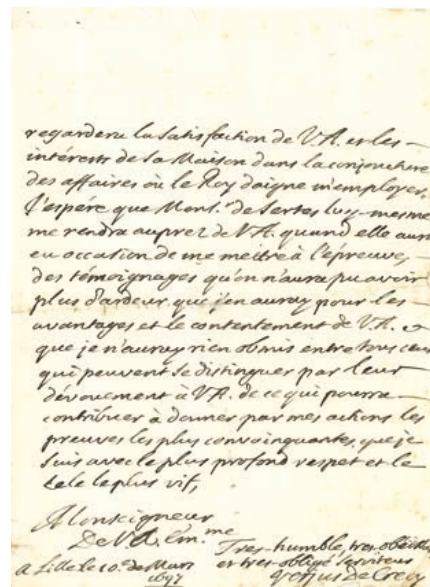 regardera la Satisfaction de V.A. et les
intérests de sa Maison dans la conjoncture
des affaires où le Roy daigne m'employer.
J'espére que Mons.r de Sertes luy-mesme
me rendra auprez de V.A. quand elle aura
eu occasion de me mettre à l'épreuve,
des témoignages qu'on n'aura pu avoir
plus d'ardeur que j'en auray pour les
avantages et le contentement de V.A. et
que je n'auray rien obmis entre tous ceux
qui peuvent se distinguer par leur
dévouement à V.A. de ce qui pourra
contribuer à donner par mes actions les
preuves les plus convainquantes, que je
suis avec le plus profond respet et le
zele le plus vif,
Monseigneur
De V.A. Em.me
Tres-humble, tres-obéissant
et tres-obligé serviteur
Verjus de Crecy
A Lille le 10.e de Mars
1697